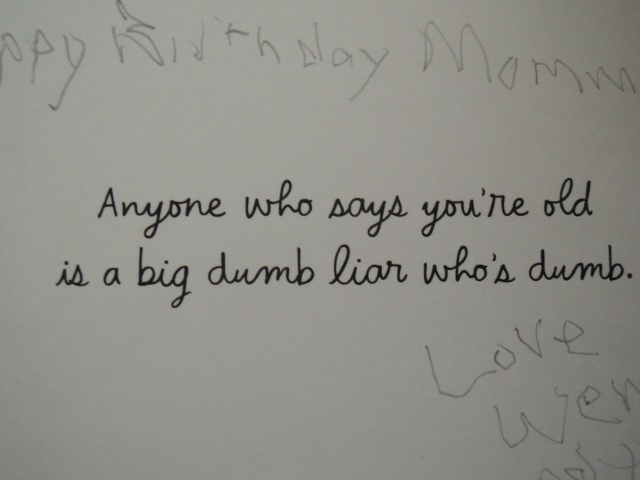 ppy Birthday Momm
Anyone who says you're old
is a big dumb liar who's dumb.
Love
Wen